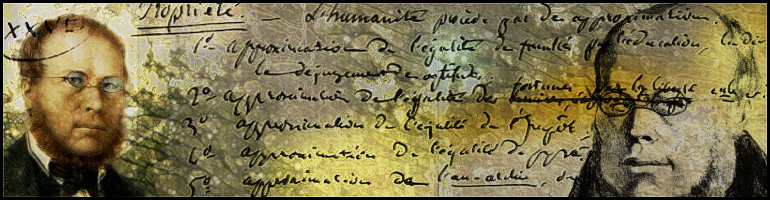 XXVI
Propriété. — L'humanité procède par des approximations.
1° approximation de l'égalité de facultés par l'éducation, la div
le dégagement des aptitudes.
2° approximation de l'égalité des fortunes
3° approximation de l'égalité de
4° approximation de l'égalité de
5° approximation de l'an-archie,